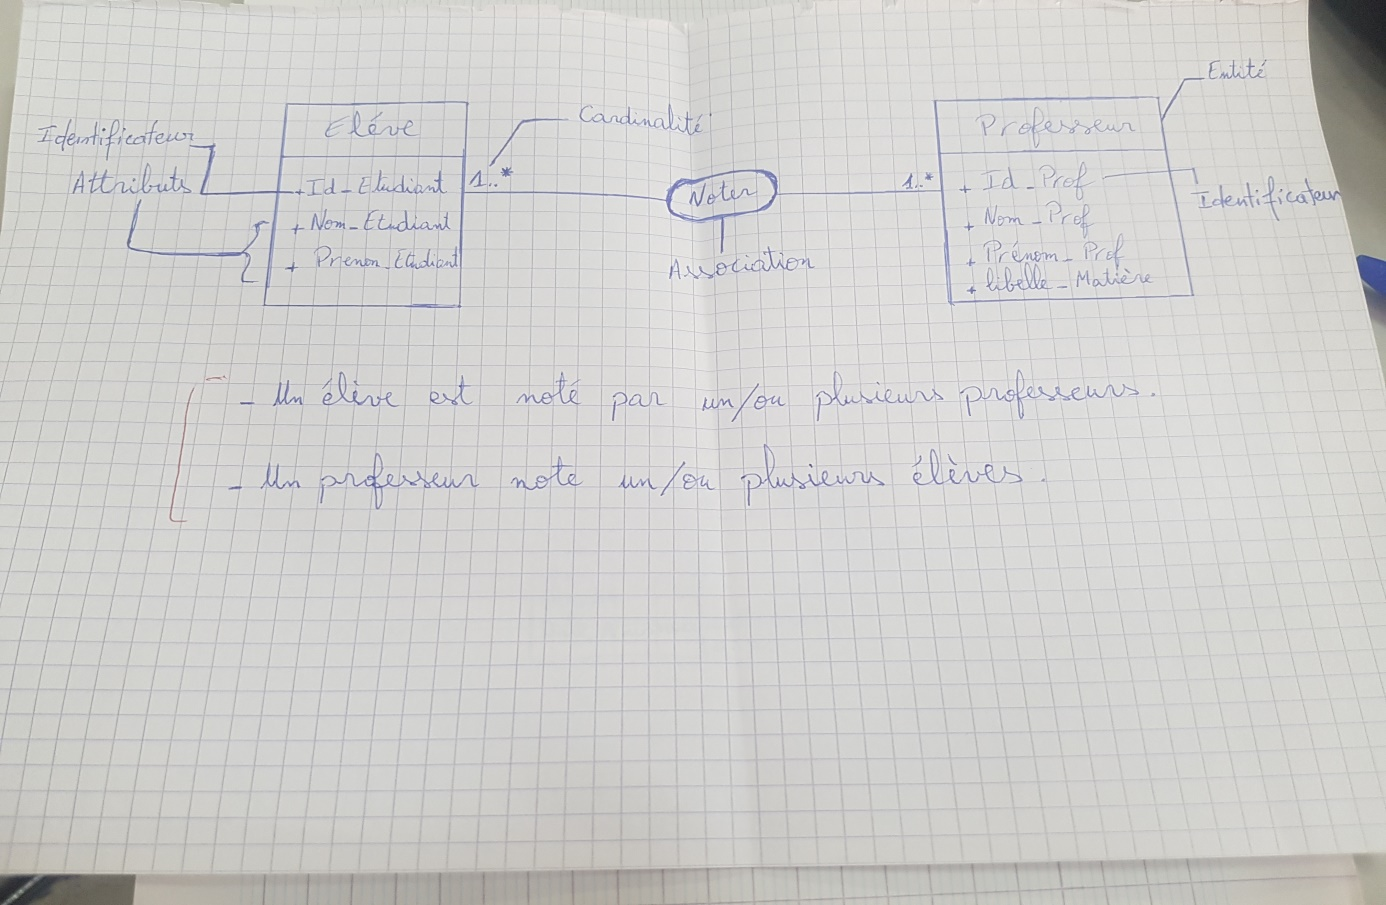 Entité
Cardinalité
Identificateur
Attributs
Eléve
+ Id_Etudiant
+ Nom_Etudiant
+ Prenom_Etudiant
1..*
Noter
Association
1..*
Professeur
+ Id_Prof
+ Nom_Prof
+ Prénom_Prof
+ libelle_Matière
Identificateur
- Un élève est noté par un/ou plusieurs professeurs.
- Un professeur note un/ou plusieurs élèves.